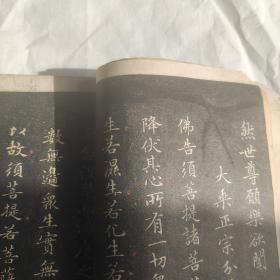 然世尊願樂欲聞
大乘正宗分
佛告須菩提諸菩
降伏其心所有一切
生若濕生若化生若
數無邊眾生實無
以故須菩提若菩薩